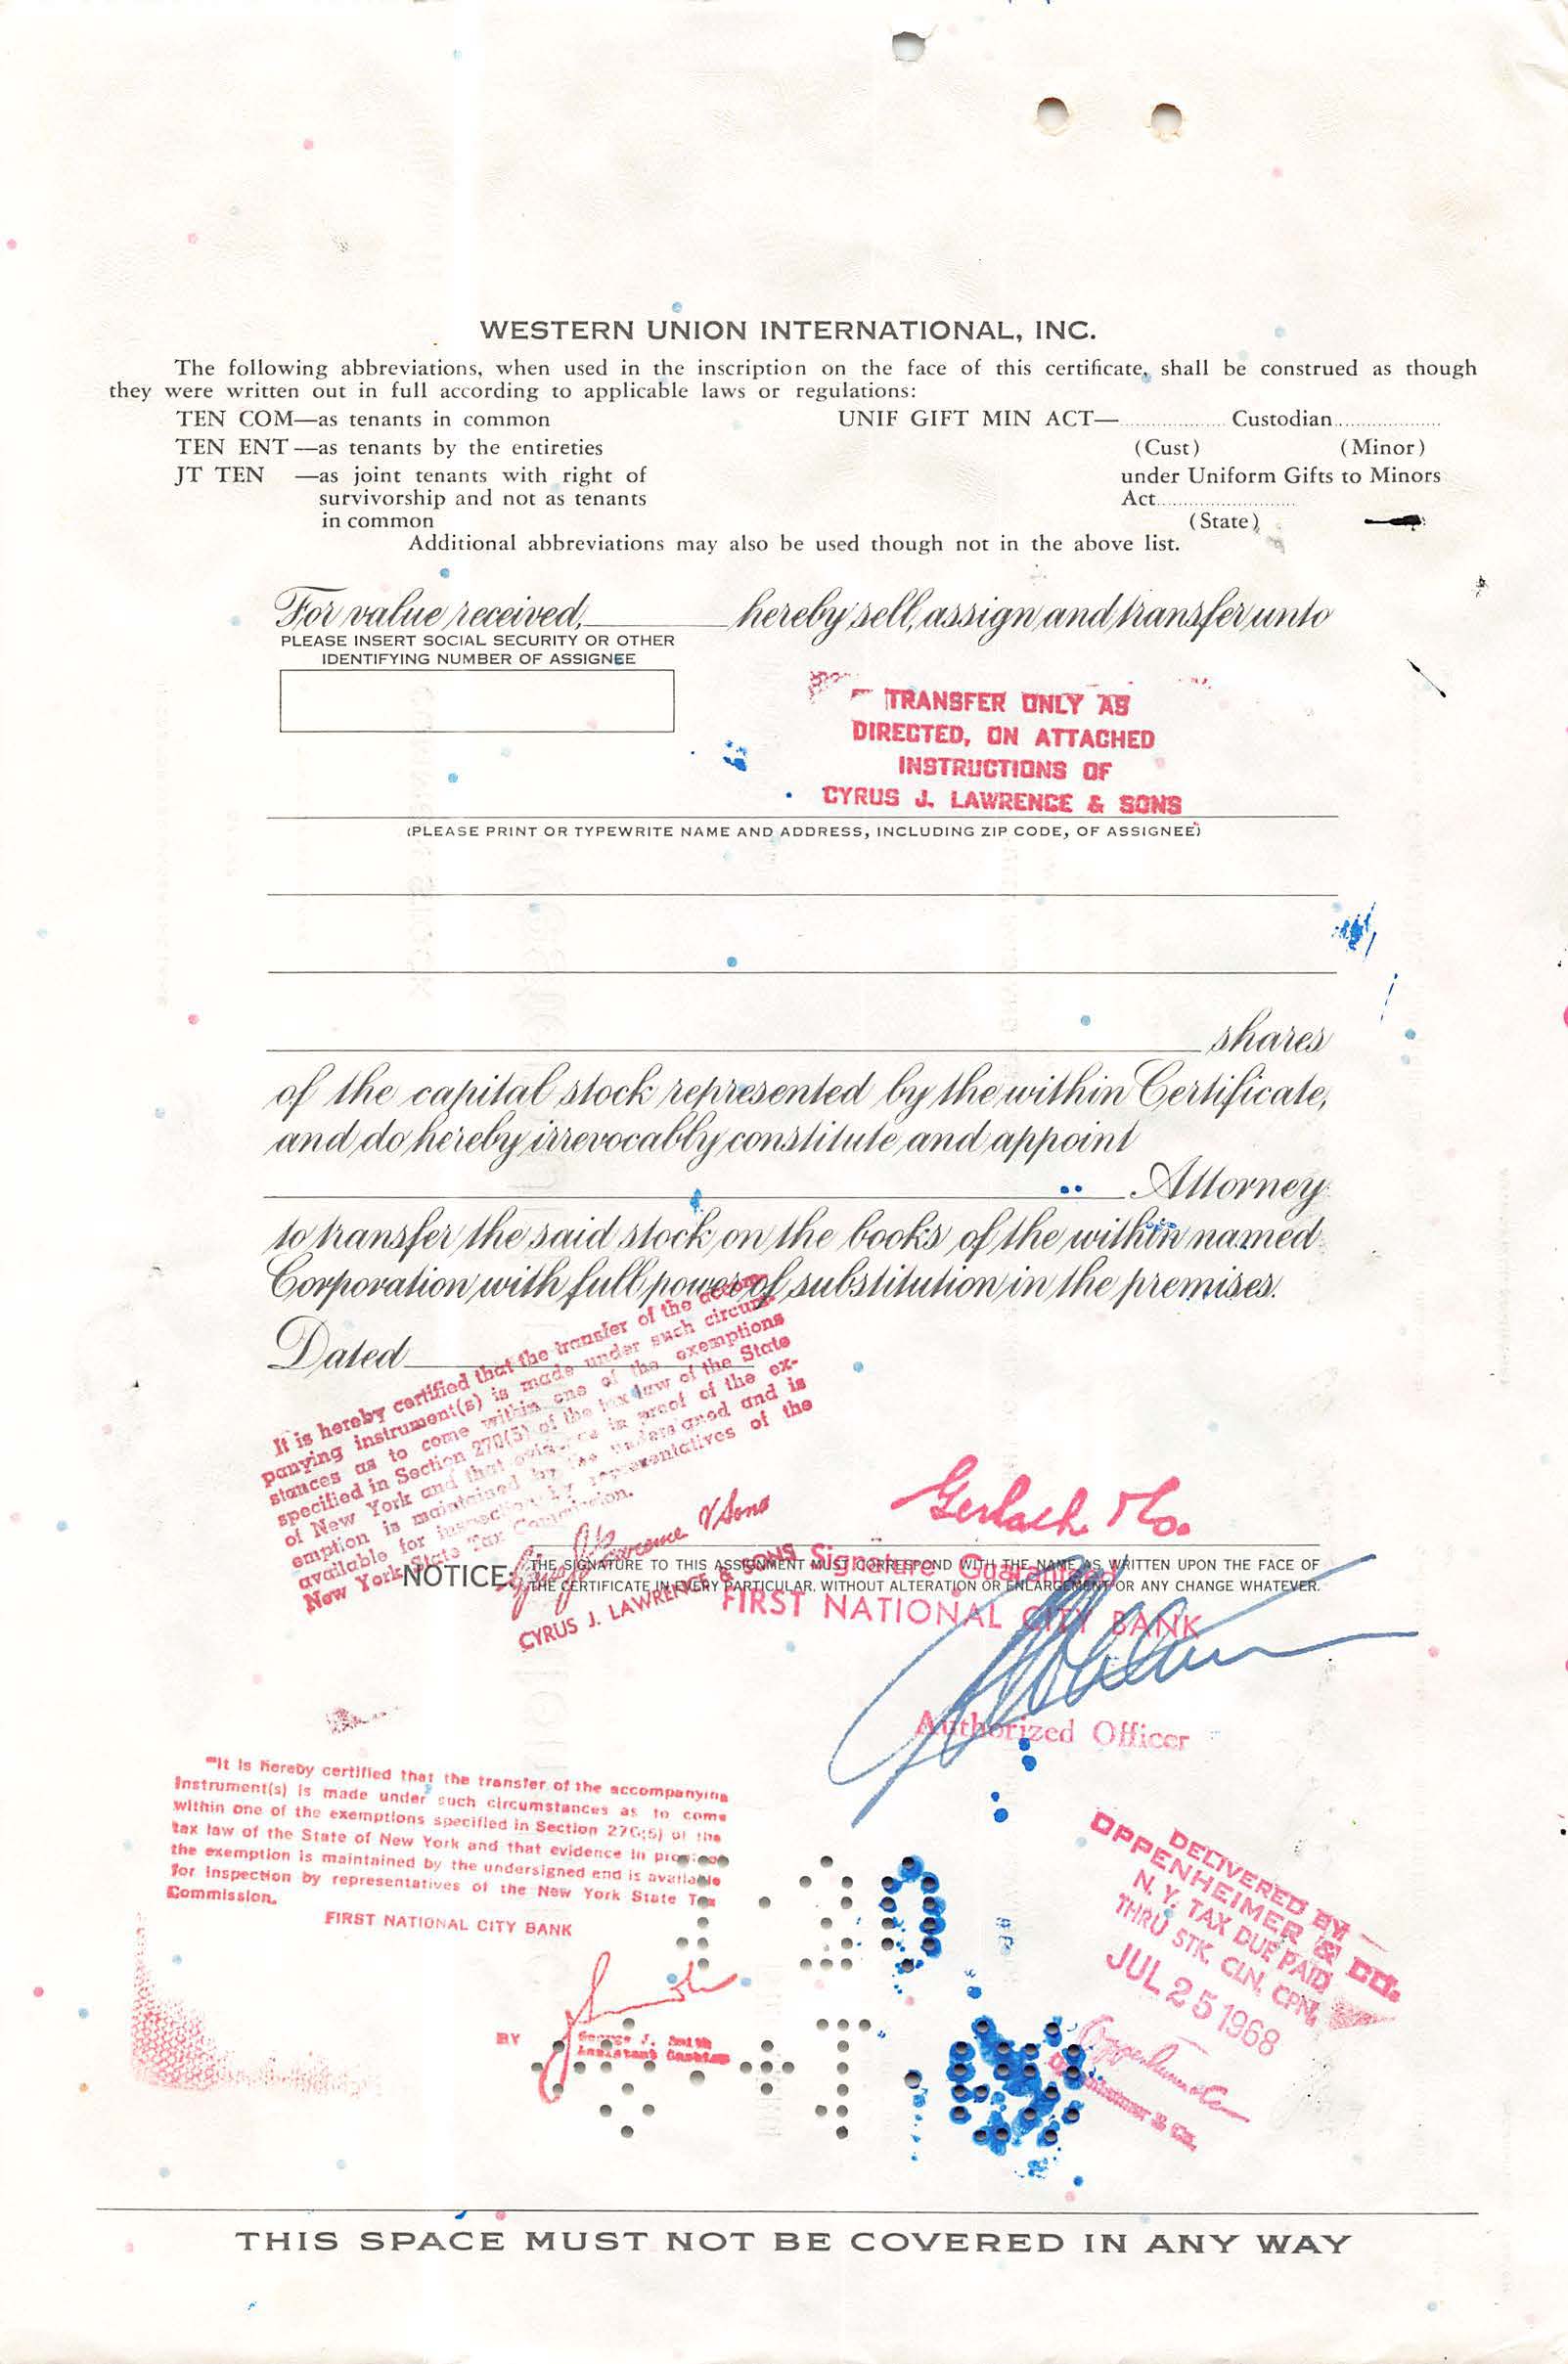 WESTERN UNION INTERNATIONAL, INC.
The following abbreviations, when used in the inscription on the face of this certificate, shall be construed as though
they were written out in full according to applicable laws or regulations:
TEN COM—as tenants in common
TEN ENT—as tenants by the entireties
JT TEN —as joint tenants with right of
survivorship and not as tenants
in common
UNIF GIFT MIN ACT—.................... Custodian....................
(Cust) (Minor)
under Uniform Gifts to Minors
Act..........................
(State)
Additional abbreviations may also be used though not in the above list.
For value received, hereby sell, assign and transfer unto
PLEASE INSERT SOCIAL SECURITY OR OTHER
IDENTIFYING NUMBER OF ASSIGNEE
TRANSFER ONLY AS
DIRECTED, ON ATTACHED
INSTRUCTIONS OF
CYRUS J. LAWRENCE & SONS
(PLEASE PRINT OR TYPEWRITE NAME AND ADDRESS, INCLUDING ZIP CODE, OF ASSIGNEE)
shares
of the capital stock represented by the within Certificate,
and do hereby irrevocably constitute and appoint
Attorney
to transfer the said stock on the books of the within named
Corporation with full power of substitution in the premises.
Dated
It is hereby certified that the transfer of the accom-
panying instrument(s) is made under such circum-
stances as to come within one of the exemptions
specified in Section 270(5) of the tax law of the State
of New York and that evidence in proof of the ex-
emption is maintained by the undersigned and is
available for inspection by representatives of the
New York State Tax Commission.
Cyrus J. Lawrence & Sons
CYRUS J. LAWRENCE & SONS
Gerlach & Co.
NOTICE: THE SIGNATURE TO THIS ASSIGNMENT MUST CORRESPOND WITH THE NAME AS WRITTEN UPON THE FACE OF
THE CERTIFICATE IN EVERY PARTICULAR, WITHOUT ALTERATION OR ENLARGEMENT OR ANY CHANGE WHATEVER.
Signature Guaranteed
FIRST NATIONAL CITY BANK
Authorized Officer
"It is hereby certified that the transfer of the accompanying
instrument(s) is made under such circumstances as to come
within one of the exemptions specified in Section 270(5) of the
tax law of the State of New York and that evidence in proof of
the exemption is maintained by the undersigned and is available
for inspection by representatives of the New York State Tax
Commission.
FIRST NATIONAL CITY BANK
BY
George J. Smith
Assistant Cashier
DELIVERED BY
OPPENHEIMER & CO.
N. Y. TAX DUE PAID
THRU STK. CLN. CPN.
JUL 25 1968
Oppenheimer & Co.
Oppenheimer & Co.
THIS SPACE MUST NOT BE COVERED IN ANY WAY